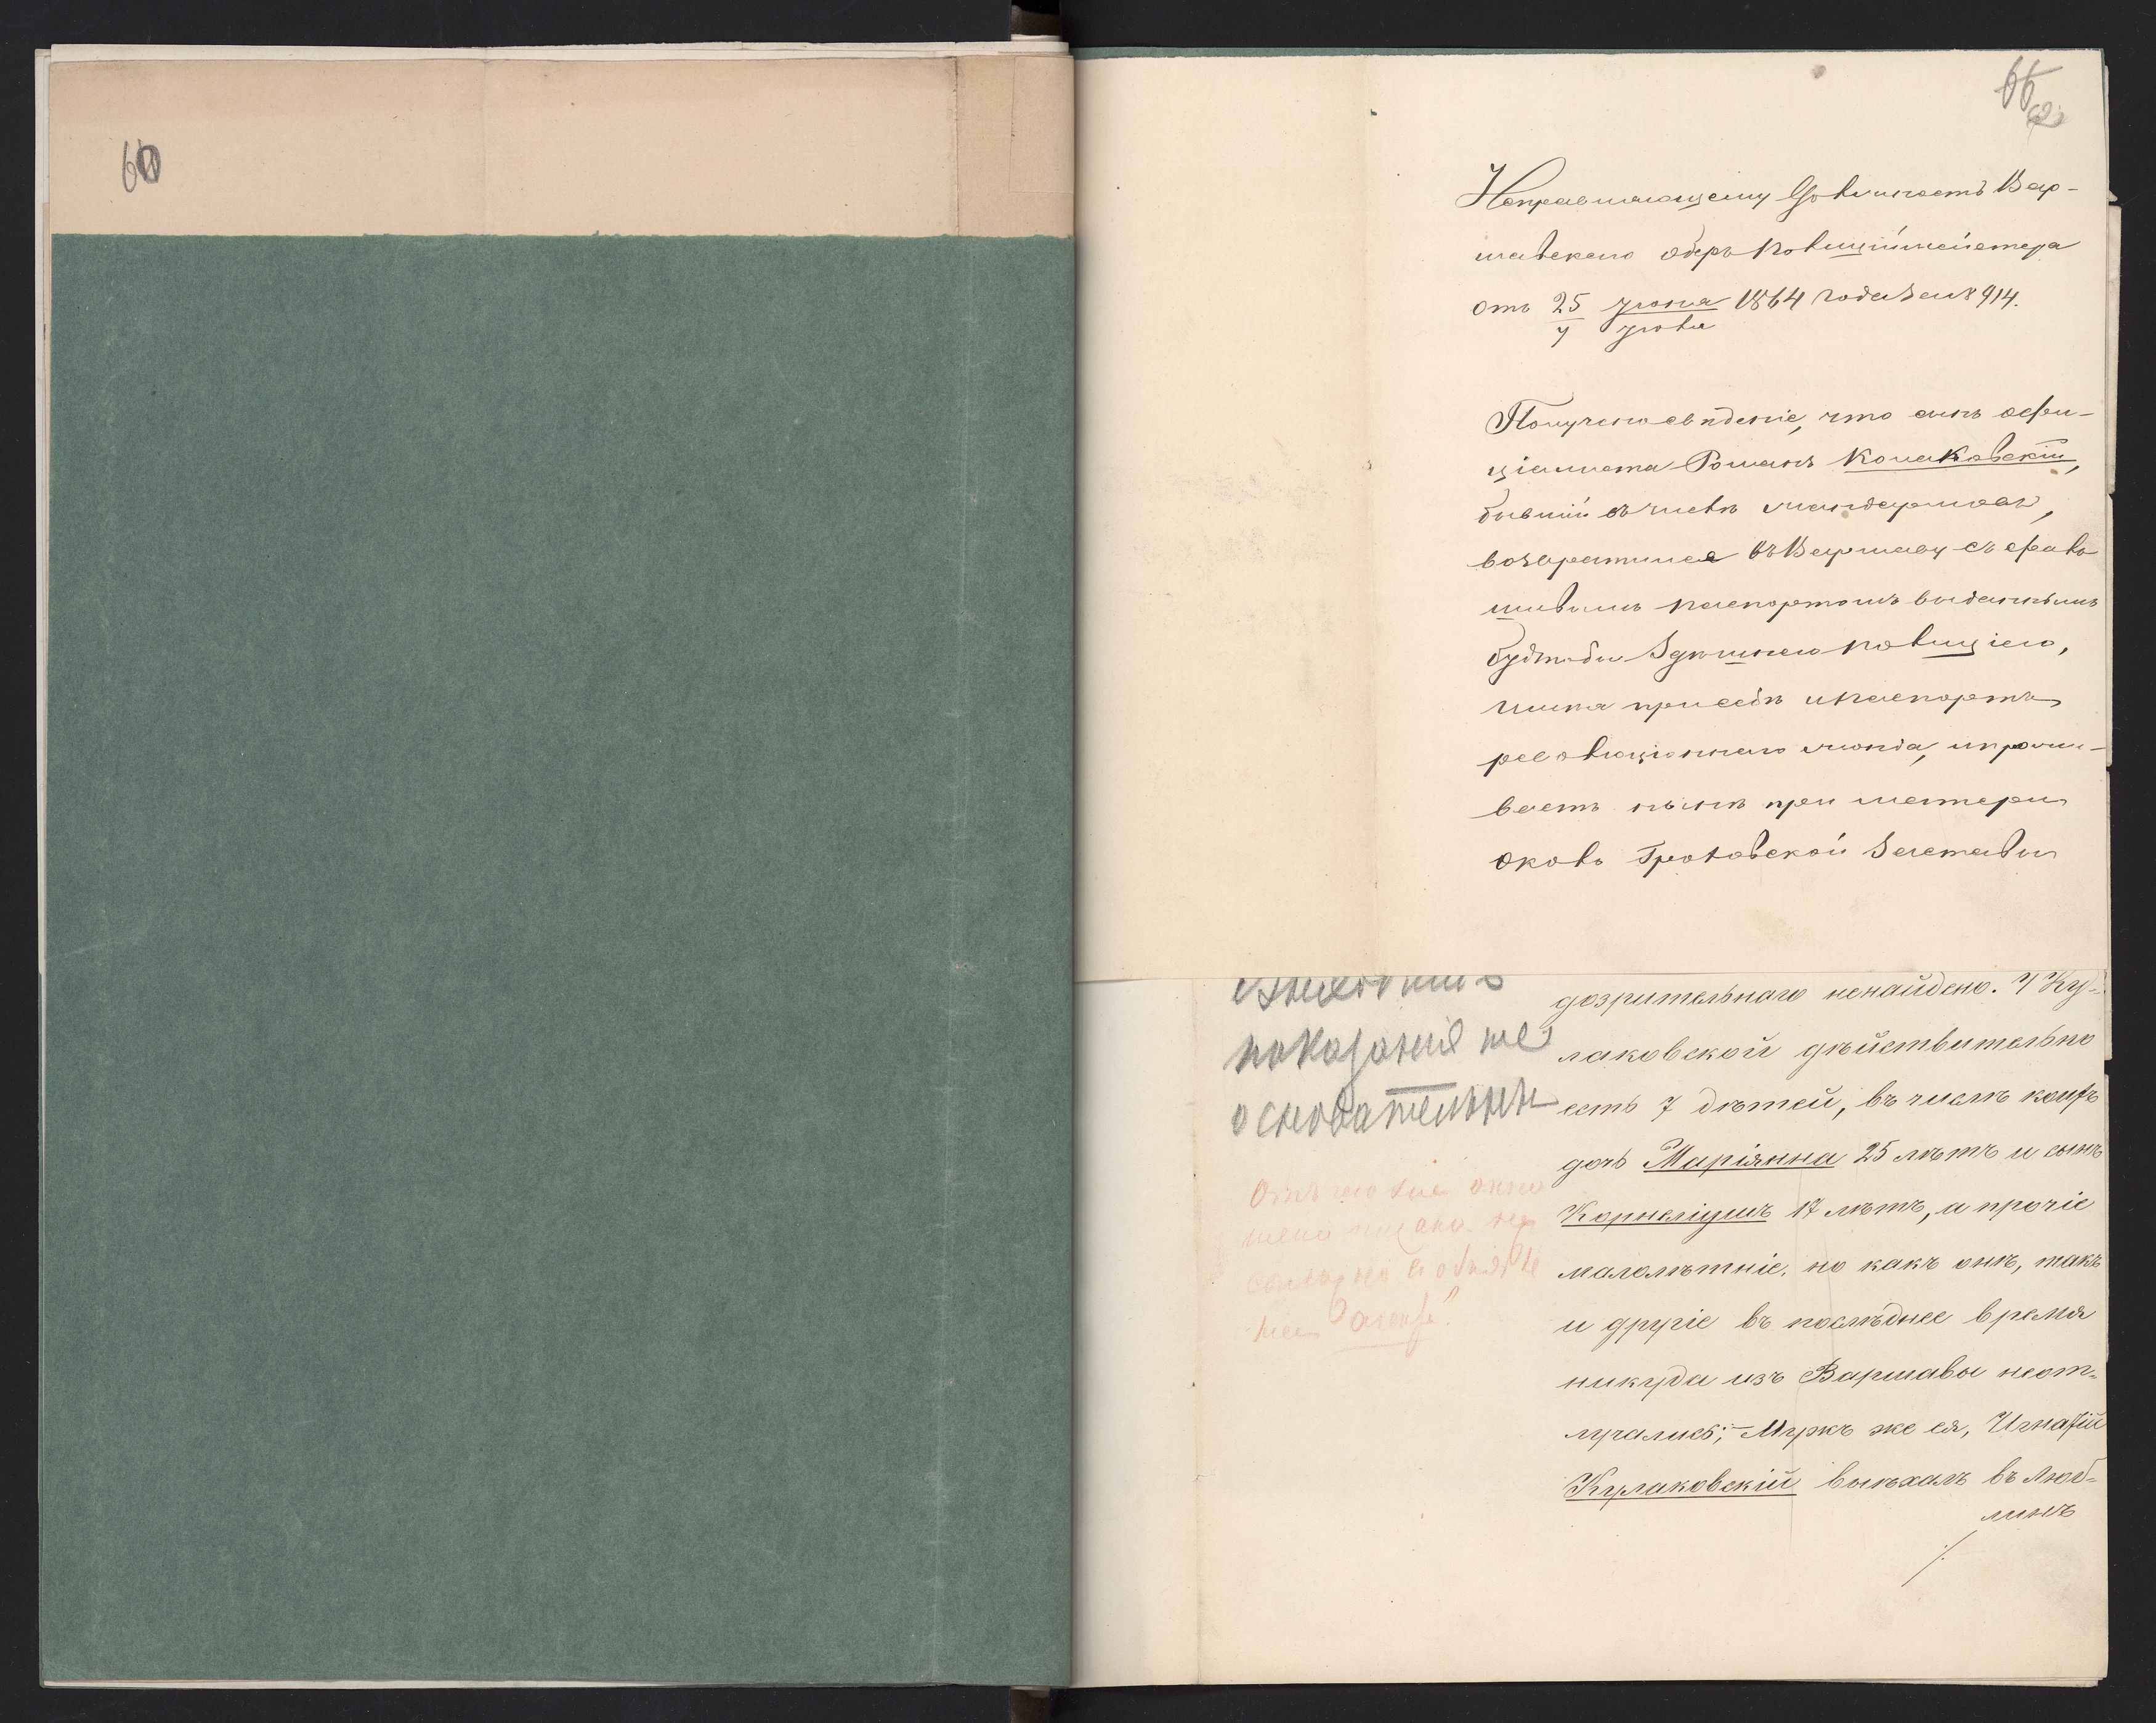 60
66
62
Исправляющему Должность Вар-
шавскаго Оберъ Полицiймейстера
отъ 25 Iюня 1864 года за № 914.
7 Iюля
Получено свѣденiе, что сынъ офи-
цiалиста Романъ Колаковскiй,
бывшiй въ числѣ жандармовъ,
возвратился въ Варшаву съ фаль
шивымъ паспортомъ выданнымъ
будтобы Здѣшнею полицiею,
имѣя при себѣ и паспортъ
революцiоннаго жонда, и прожи-
ваетъ нынѣ при матери
около Гроховской Заставы
показанiя не
основательны
дозрительнаго ненайдено. У Ку-
лаковской дѣйствительно
есть 7 дѣтей, въ числѣ коихъ
дочь Марiянна 25 лѣтъ и сынъ
Корнелiушъ 17 лѣтъ, а прочiе
малолѣтнiе, но какъ онѣ, такъ
и другiе въ послѣднее время
никуда изъ Варшавы неот-
лучались; – Мужъ же ея, Игнатiй
Кулаковскiй выѣхалъ въ Люб-
линъ